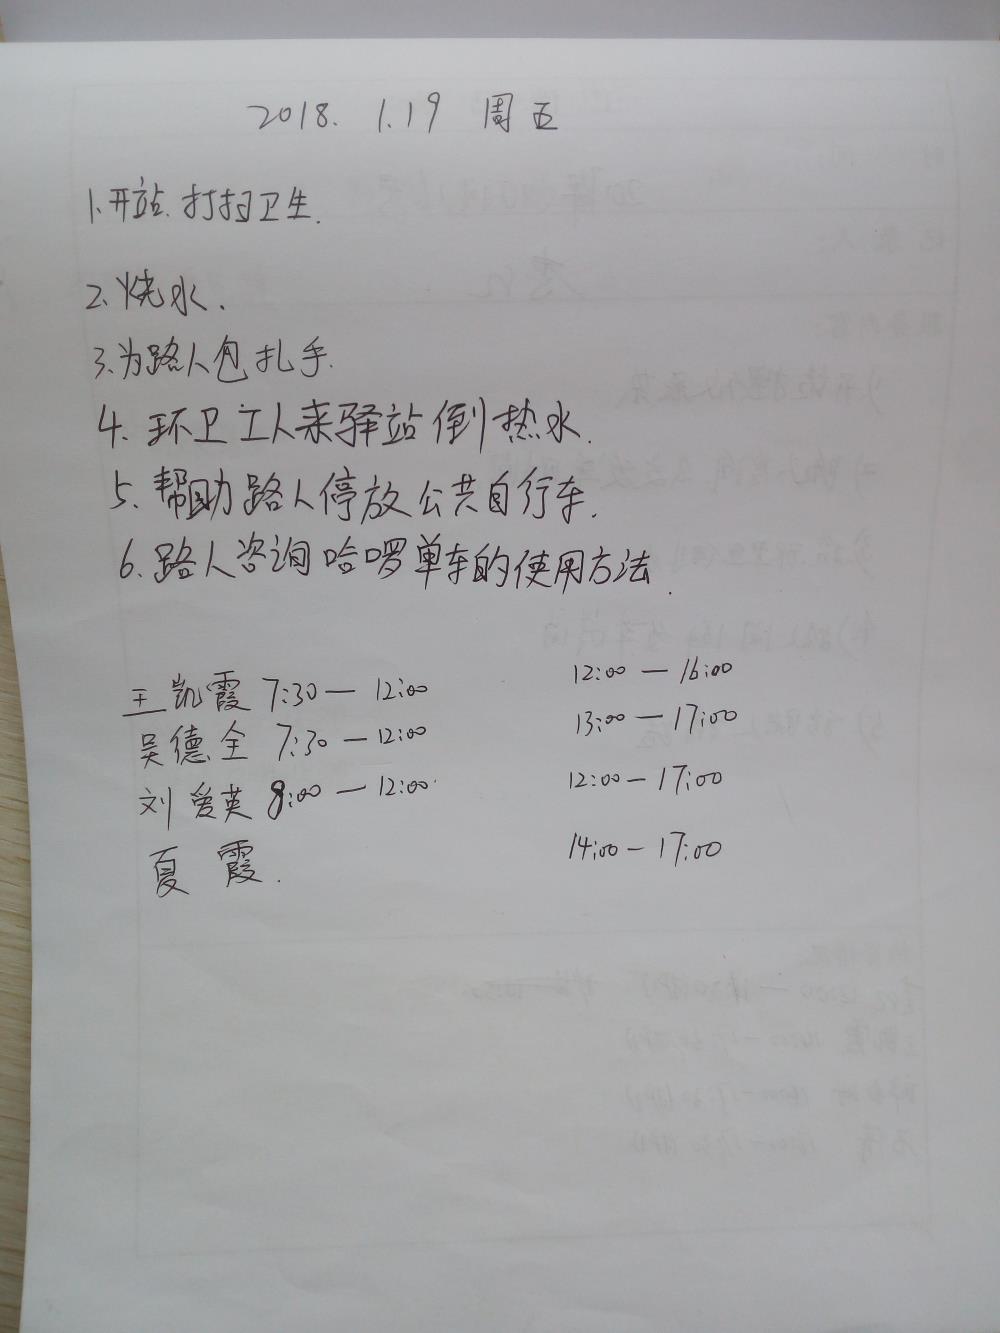 2018. 1.19 周五
1.开站.打扫卫生.
2.烧水.
3.为路人包扎手.
4.环卫工人来驿站倒热水.
5.帮助路人停放公共自行车.
6.路人咨询哈啰单车的使用方法.
王凯霞 7:30—12:00 12:00—16:00
吴德全 7:30—12:00 13:00—17:00
刘爱英 8:00—12:00 12:00—17:00
夏霞. 14:00—17:00